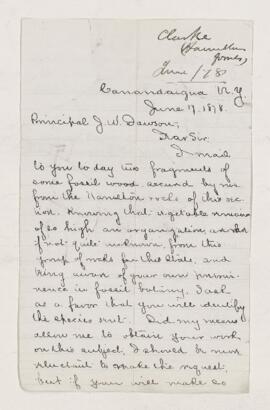 Clarke
(Hamilton
forms)
June /78
Canandaigua N.Y.
June 17. 1878.
Principal J. W. Dawson;
Dear Sir
I mail
to you to day two fragments of
some fossil wood secured by me
from the Hamilton rocks of this sec-
tion. Knowing that vegetable remains
of so high an organization, are rare
if not quite unknown, from this
group of rocks in this State, and
being aware of your own promi-
nence in fossil botany, I ask
as a favor that you will identify
the species sent. Did my means
allow me to obtain your work
on this subject, I should be more
reluctant to make the request,
but if you will make so